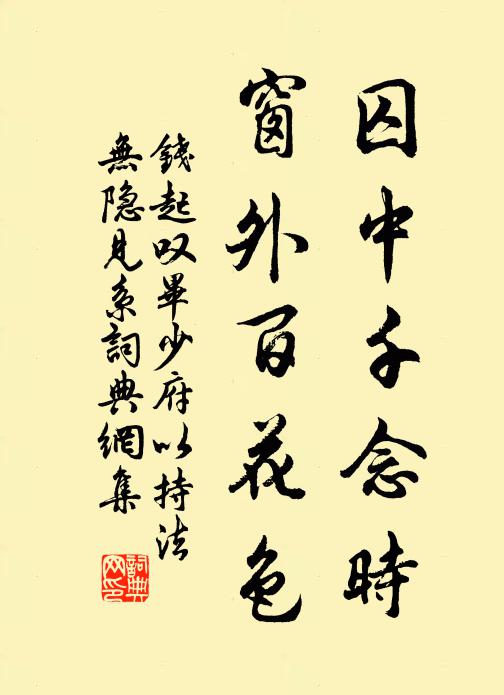 囚中千念時
窗外百花色
錢起叹畢少府以持法
無隐見系詞典網集
詞典
网印